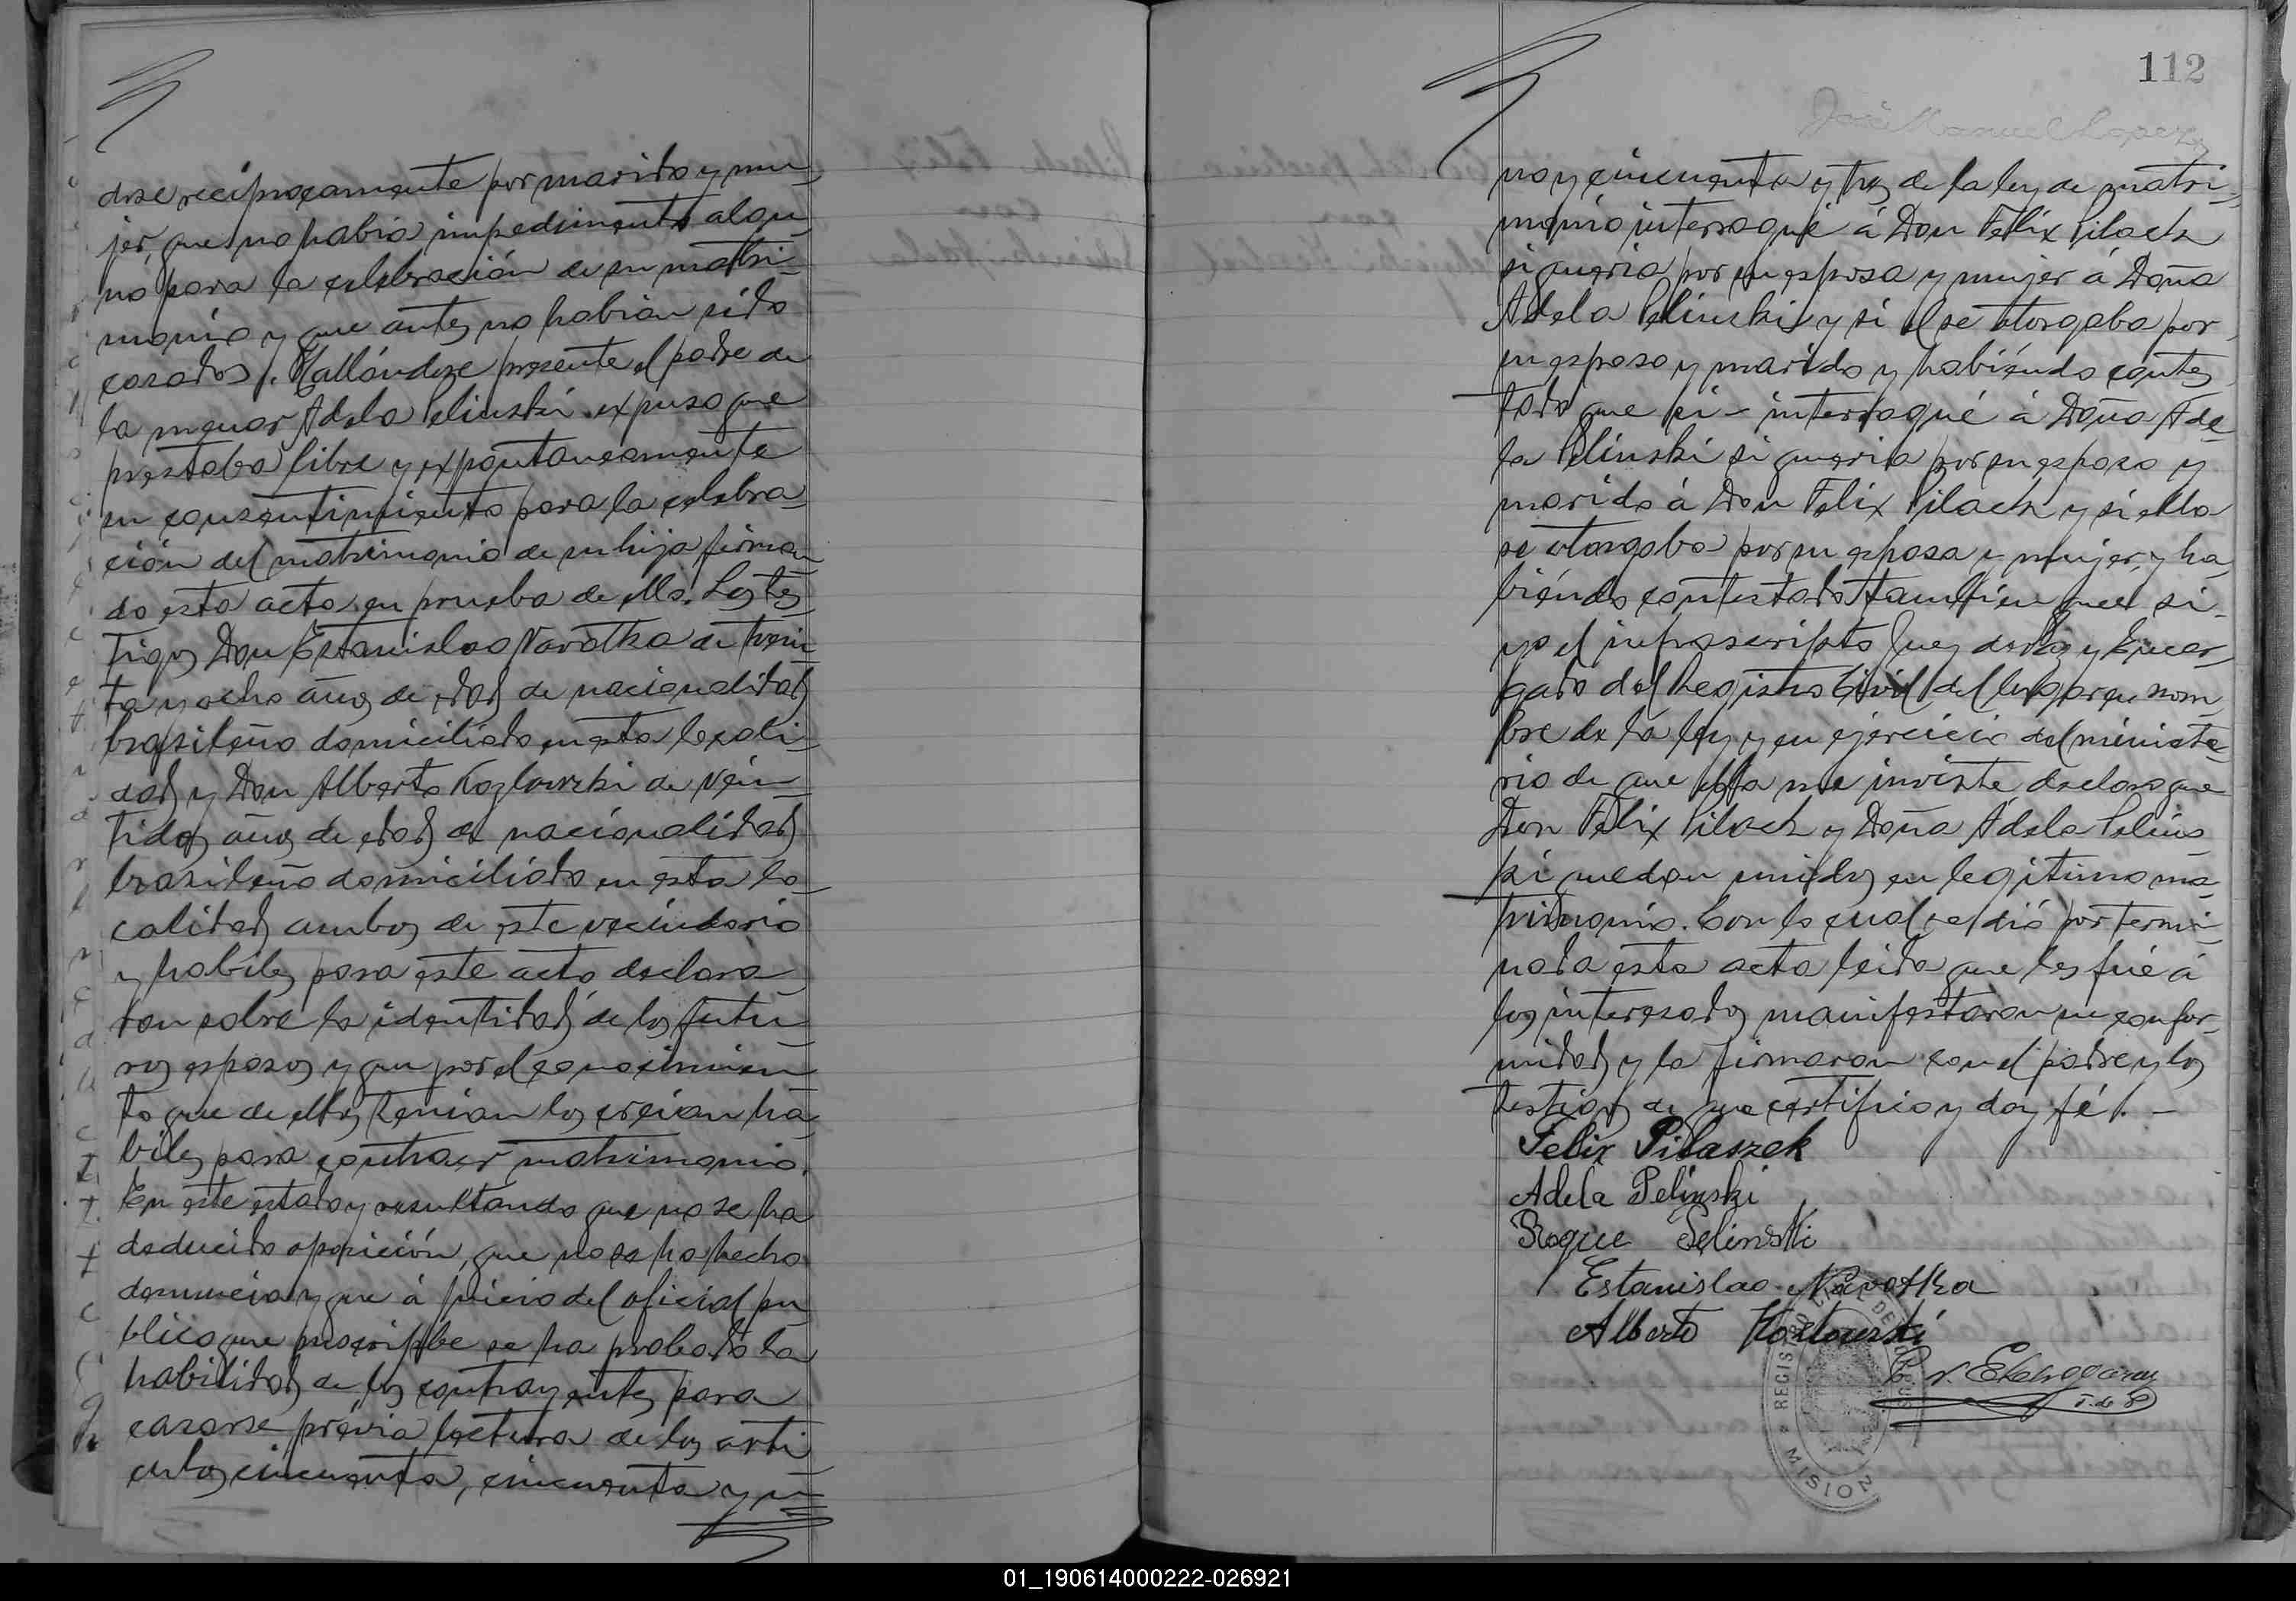 dose reciprocamente por marido y mu-
jer, que no habia impedimento algu-
no para la celebración de su matri-
monio y que antes no habian sido
casados. Hallándose presente el padre de
la menor Adela Pelinski expuso que
prestaba libre y expontaneamente
su consentimiento para la celebra-
ción del matrimonio de su hija firman-
do esta acta en prueba de ello. Los tes-
tigos Don Estanislao Navatka de trein-
ta y ocho años de edad de nacionalidad
brasileña domiciliado en esta locali-
dad y Don Alberto Kozlowski de vein-
tidos años de edad de nacionalidad
brasileña domiciliado en esta lo-
calidad ambos de este vecindario
y habiles para este acto declara-
ron sobre la identidad de los futu-
ros esposos y que por el conocimien-
to que de ellos tenian los creian há-
biles para contraer matrimonio.
En este estado y resultando que no se ha
deducido oposición, que no se ha hecho
denuncia y que á juicio del oficial pu-
blico que suscribe se ha probado la
habilidad de los contrayentes para
casarse prévia lectura de los arti-
culos cincuenta, cincuenta y u-
112
José Manuel Lopez
no y cincuenta y tres de la ley de matri-
monio interrogué á Don Felix Pilach
si queria por su esposa y mujer á Doña
Adela Pelinski y si él se otorgaba por
su esposo y marido y habiéndo contes-
tado que si - interrogué á Doña Ade-
la Pelinski si queria por su esposo y
marido á Don Felix Pilach y si ella
se otorgaba por su esposa y mujer, y ha-
biéndo contestado también que si -
yo el infrascripto Juez de Paz y Encar-
gado del Registro Civil del lugar en nom-
bre de la ley y en ejercicio del ministe-
rio de que ella me inviste declaro que
Don Felix Pilach y Doña Adela Pelins-
ki quedan unidos en legitimo ma-
trimonio. Con lo cual se dió por termi-
nada esta acta leida que les fué á
los interesados manifestaron su confor-
midad y la firmaron con el padre y los
testigos de que certifico y doy fé. -
Felix Pilaszek
Adela Pelinski
Roque Selinski
Estanislao Navatka
Alberto Kozlowski
Echegaray
J. de P
REGISTRO CIVIL DE
MISION
01_190614000222-026921